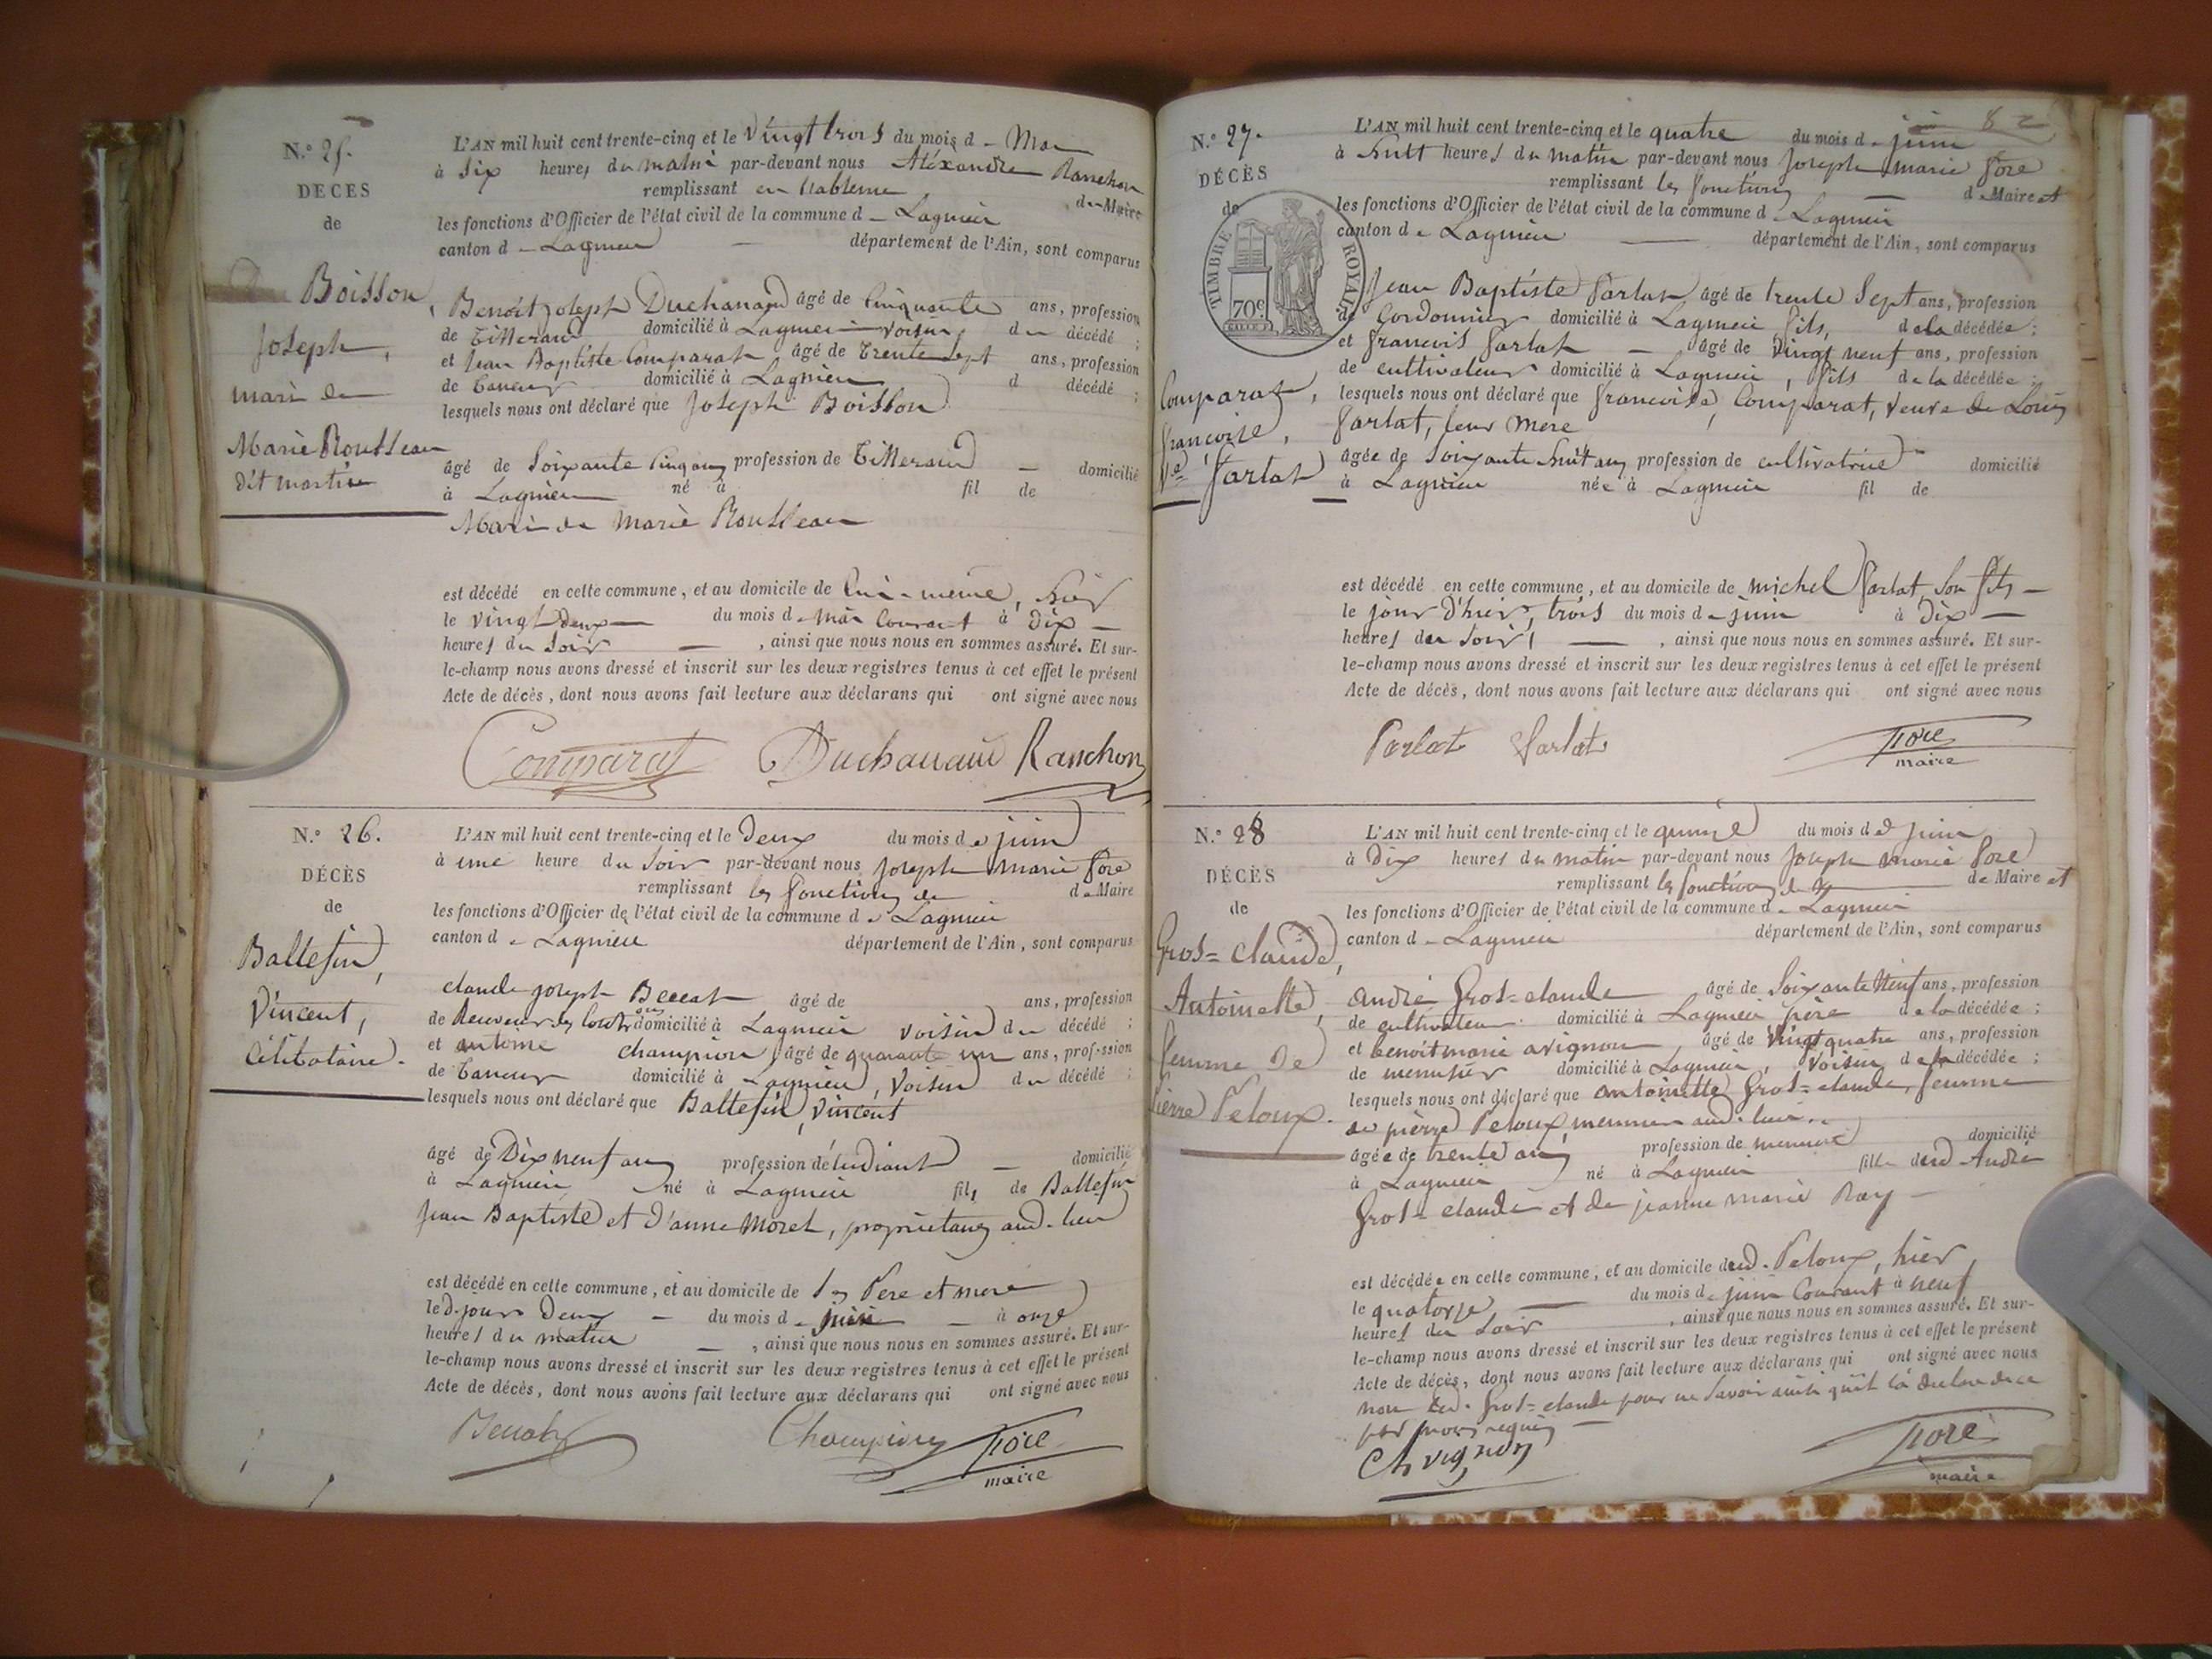 N.º 25.
DECES
de
Boisson,
Joseph,
mari de
Marie Rousseau
dit martin
L'AN mil huit cent trente-cinq et le vingt trois du mois d - Mai
à Six heures du matin par-devant nous Aléxandre Ranchon
remplissant en l'absence d - Maire
les fonctions d'Officier de l'état civil de la commune d - Lagnieu
canton d - Lagnieu département de l'Ain, sont comparus
Benoit Joseph Duchanaud âgé de Cinquante ans, profession
de Tisserand domicilié à Lagnieu voisin du décédé ;
et Jean Baptiste Comparat âgé de Trente Sept ans, profession
de Taneur domicilié à Lagnieu d décédé ;
lesquels nous ont déclaré que Joseph Boisson
âgé de Soixante Cinq ans profession de Tisserand - domicilié
à Lagnieu né à fil de
Mari de Marie Rousseau
est décédé en cette commune, et au domicile de lui-même, hier
le vingt deux du mois d - mai Courant à Dix -
heures du Soir , ainsi que nous nous en sommes assuré. Et sur-
le-champ nous avons dressé et inscrit sur les deux registres tenus à cet effet le présent
Acte de décès, dont nous avons fait lecture aux déclarans qui ont signé avec nous
Comparat Duchanaud Ranchon
N.º 26.
DÉCÈS
de
Ballefin,
Vincent,
Célibataire.
L'AN mil huit cent trente-cinq et le Deux du mois de juin
à une heure du Soir par-devant nous Joseph Marie Fore
remplissant les fonctions de d - Maire
les fonctions d'Officier de l'état civil de la commune d - Lagnieu
canton d - Lagnieu département de l'Ain, sont comparus
claude joseph Beccat âgé de ans, profession
de domicilié à Lagnieu voisin du décédé ;
et antoine champion, âgé de quarante un ans, profession
de Taneur domicilié à Lagnieu, Voisin du décédé ;
lesquels nous ont déclaré que Ballefin, Vincent
âgé de Dix neuf ans profession d'étudiant - domicilié
à Lagnieu né à Lagnieu fils de Ballefin
Jean Baptiste et d'anne Morel, proprietaires aud. lieu
est décédé en cette commune, et au domicile de ses Pere et mere
led. jour Deux - du mois d - juin - à onze
heures du matin - , ainsi que nous nous en sommes assuré. Et sur-
le-champ nous avons dressé et inscrit sur les deux registres tenus à cet effet le présent
Acte de décès, dont nous avons fait lecture aux déclarans qui ont signé avec nous
Beccat Champion Fore
maire
82
N.º 27.
DÉCÈS
de
TIMBRE ROYAL
70c.
Comparat,
françoise,
Ve. Farlat
L'AN mil huit cent trente-cinq et le quatre du mois d - juin
à huit heures du matin par-devant nous Joseph Marie Fore
remplissant les fonctions d - Maire et
les fonctions d'Officier de l'état civil de la commune d - Lagnieu
canton d - Lagnieu département de l'Ain, sont comparus
Jean Baptiste Farlat âgé de trente Sept ans, profession
de Cordonnier domicilié à Lagnieu fils, de la décédée ;
et francois Farlat - âgé de vingt neuf ans, profession
de cultivateur domicilié à Lagnieu, fils de la décédée ;
lesquels nous ont déclaré que francoise Comparat, veuve de Louis
Farlat, leur mere
âgée de Soixante huit ans profession de cultivatrice domicilié
à Lagnieu née à Lagnieu fil de
est décédé en cette commune, et au domicile de michel Farlat son fils -
le jour d'hier, trois du mois d - juin à Dix -
heures du Soir , ainsi que nous nous en sommes assuré. Et sur-
le-champ nous avons dressé et inscrit sur les deux registres tenus à cet effet le présent
Acte de décès, dont nous avons fait lecture aux déclarans qui ont signé avec nous
Farlat Farlat Fore
maire
N.º 28
DÉCÈS
de
Gros=claude,
Antoinette,
femme de
Pierre Peloux.
L'AN mil huit cent trente-cinq et le quinze du mois de juin
à Dix heures du matin par-devant nous Joseph Marie Fore
remplissant les fonctions de Maire et
les fonctions d'Officier de l'état civil de la commune d - Lagnieu
canton d - Lagnieu département de l'Ain, sont comparus
andré Gros=claude âgé de Soixante Neuf ans, profession
de cultivateur domicilié à Lagnieu père de la décédée ;
et benoit marie avignon, âgé de vingt quatre ans, profession
de menuisier domicilié à Lagnieu, voisin de la décédée ;
lesquels nous ont déclaré que antoinette Gros=claude, femme
de pierre Peloux, meunier aud. lieu
âgée de trente ans profession de domicilié
à Lagnieu né à Lagnieu fille dud. André
Gros=claude et de jeanne marie Ray -
est décédée en cette commune, et au domicile dud. Peloux, hier,
le quatorze, du mois de juin Courant à neuf
heures du Soir , ainsi que nous nous en sommes assuré. Et sur-
le-champ nous avons dressé et inscrit sur les deux registres tenus à cet effet le présent
Acte de décès, dont nous avons fait lecture aux déclarans qui ont signé avec nous
non led. Gros=claude pour ne Savoir ainsi qu'il l'a déclaré de ce
requis -
Avignon Fore
maire